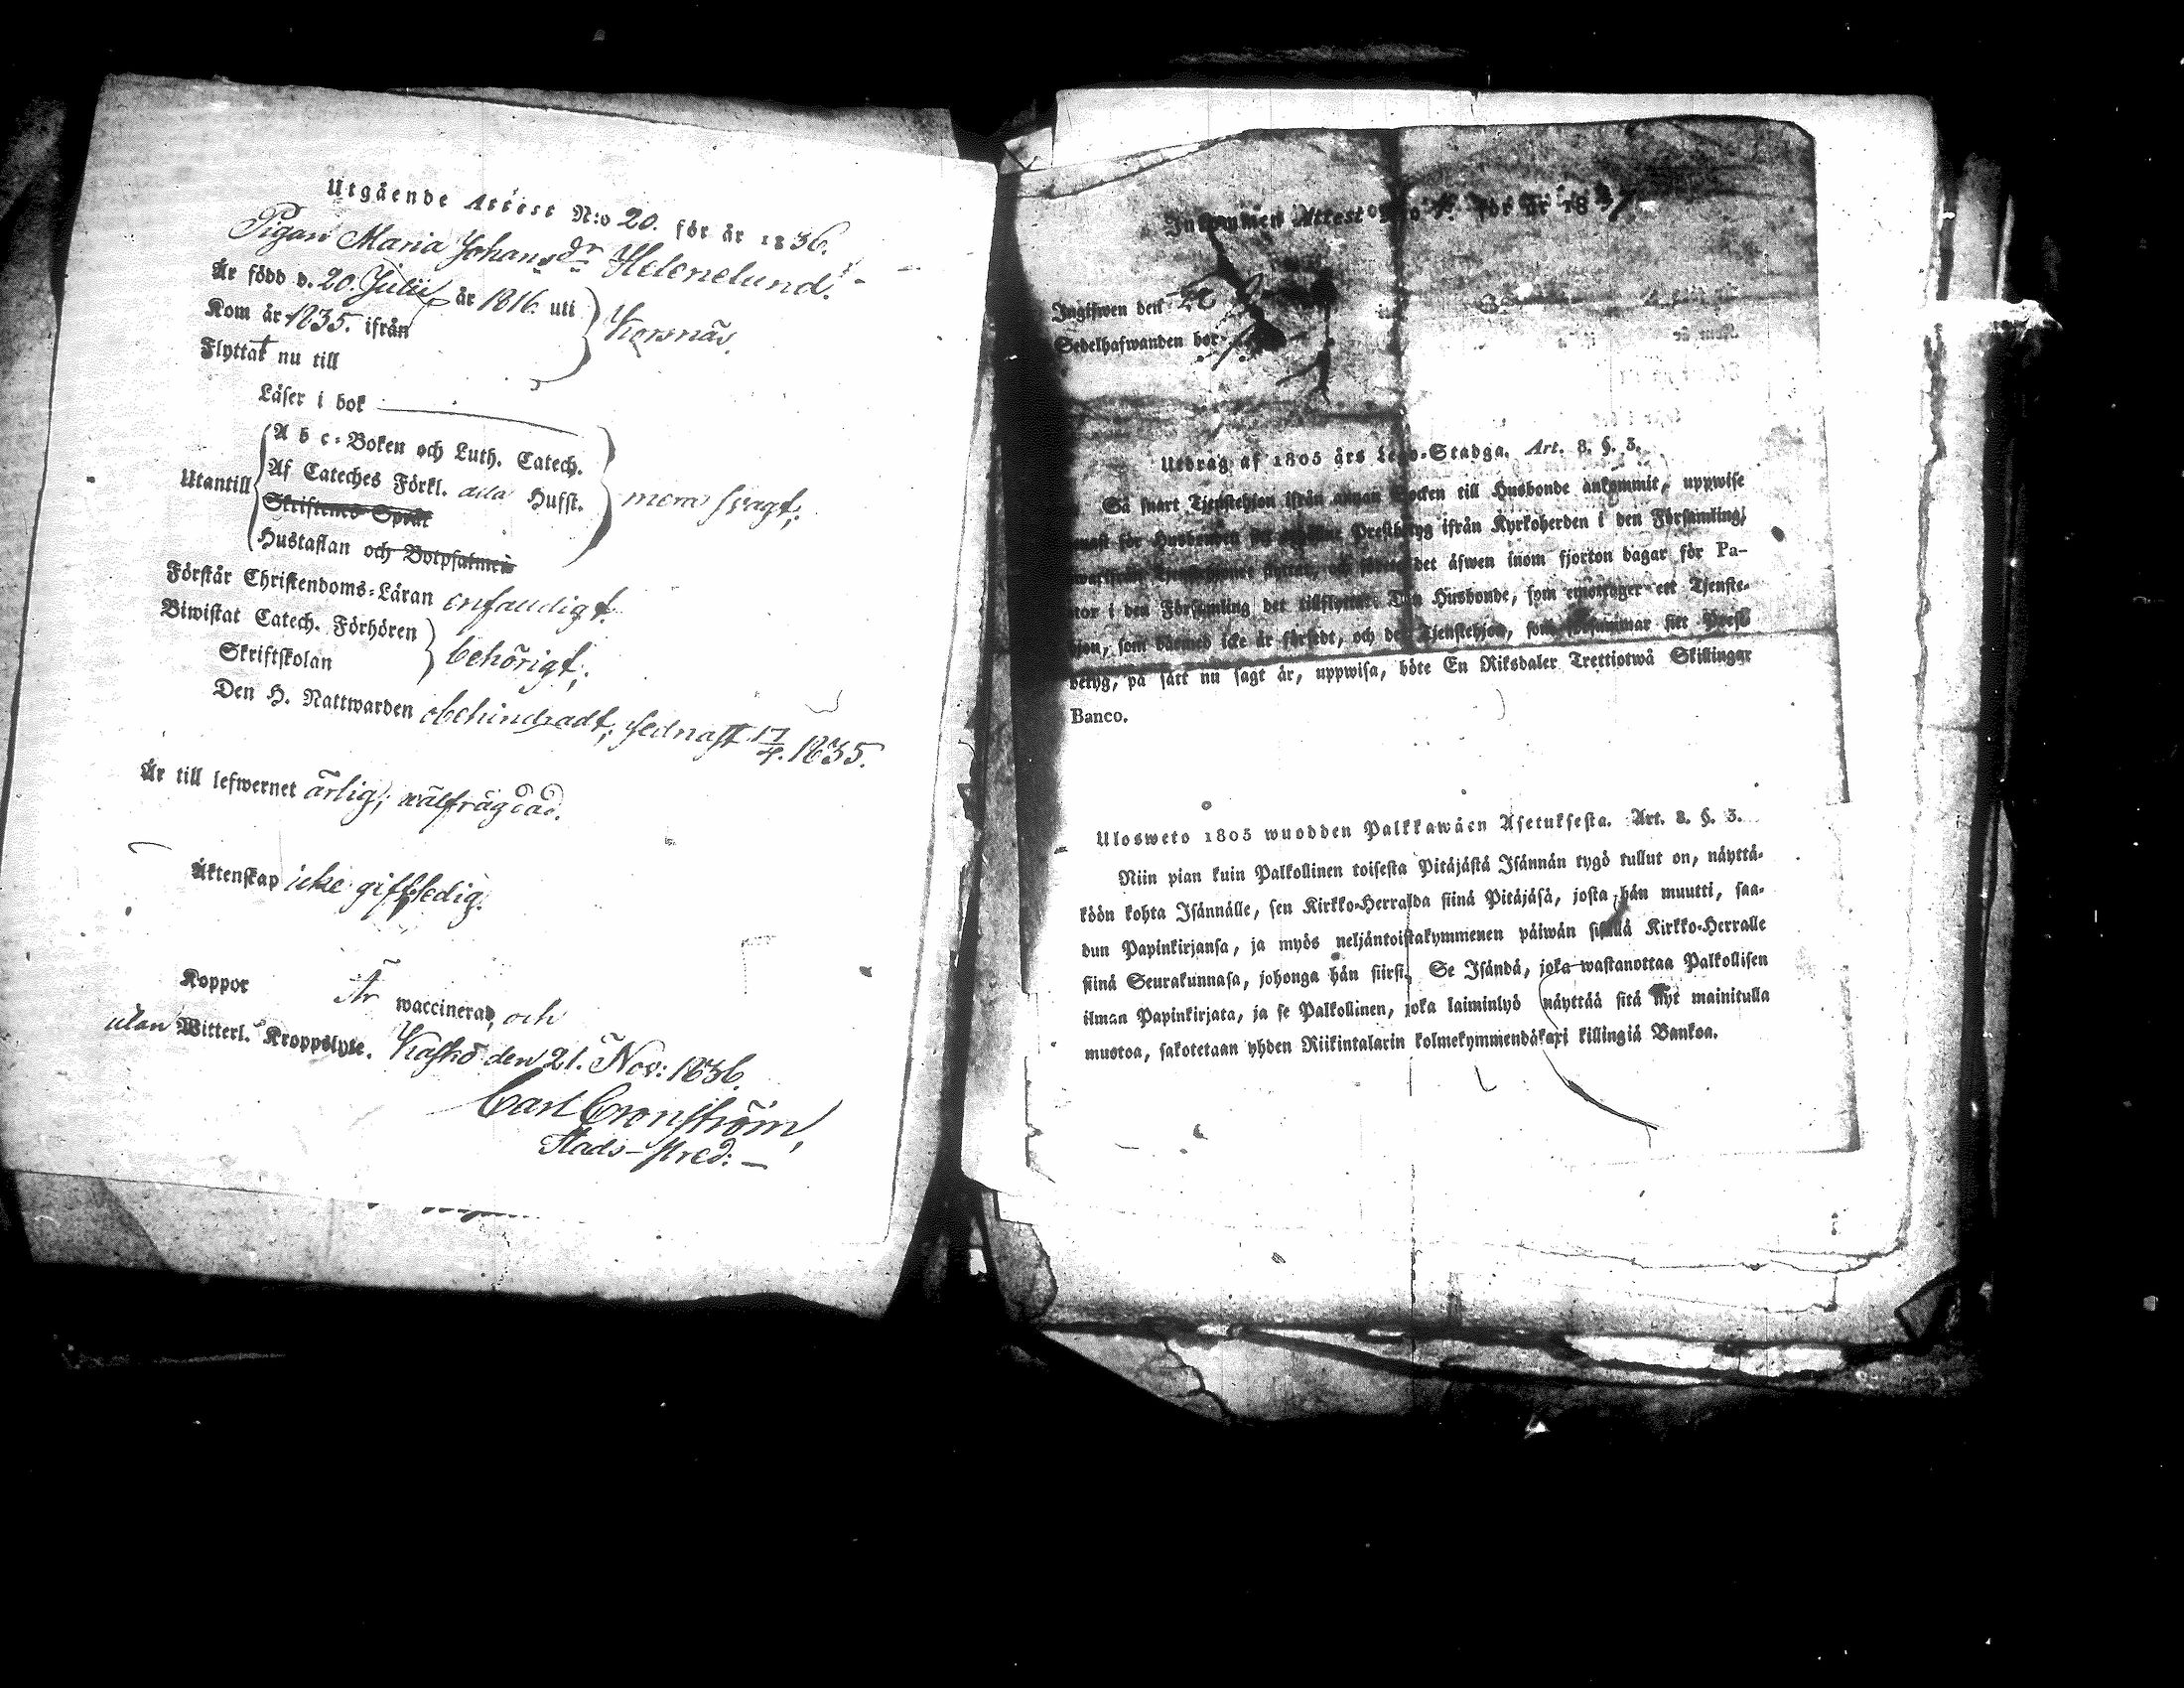 Utgående Attest N:o 20. för år 1836.
Pigan Maria Johansdr Helenelund.
Är född d. 20. Julii år 1816. uti
Kom år 1835. ifrån
Korsnäs.
Flyttat nu till
Läser i bok
A b c-Boken och Luth. Catech.
Utantill
Af Cateches Förkl. Hufst.
Skriftenes Språk
Hustaflan och Botpsalmen
mera svagt.
Förstår Christendoms-Läran enfaldigt.
Biwistat Catech. Förhören
Skriftskolan
behörigt.
Den H. Nattwarden obehindradt, sednast 17/4. 1835.
Är till lefwernet ärlig, wälfrägdad.
Äktenskap icke gift, ledig.
Koppor Är waccinerad, och
utan Witterl. Kroppslyte. Kaskö den 21. Nov: 1836.
Carl Cronström,
Stads-Pred:
Inkommen Attest N:o för år 18
Ingifwen den
Sedelhafwanden bor
Utdrag af 1805 års Lego-Stadga. Art. 8. §. 3.
Så snart Tjenstehjon ifrån annan Socken till Husbonde ankommit, uppwise
för Husbonden Prestbetyg ifrån Kyrkoherden i den Församling,
det äfwen inom fjorton dagar för Pa-
stor i den Församling det tillflyttat. Den Husbonde, som emottager ett Tjenste-
hjon, som dermed icke är försedt, och det Tjenstehjon, som försummar sitt Prest-
betyg, på sätt nu sagt är, uppwisa, böte En Riksdaler Trettiotwå Skillingar
Banco.
Ulosweto 1805 wuodden Palkkawäen Asetuksesta. Art. 8. §. 3.
Niin pian kuin Palkollinen toisesta Pitäjästä Isännän tygö tullut on, näyttä-
köön kohta Isännälle, sen Kirkko-Herralda siinä Pitäjäsä, josta hän muutti, saa-
dun Papinkirjansa, ja myös neljäntoistakymmenen päiwän sisällä Kirkko-Herralle
siinä Seurakunnasa, johonga hän siirsi. Se Isändä, joka wastanottaa Palkollisen
ilman Papinkirjata, ja se Palkollinen, joka laiminlyö näyttää sitä nyt mainitulla
muotoa, sakotetaan yhden Riikintalarin kolmekymmendäkaxi killingiä Bankoa.